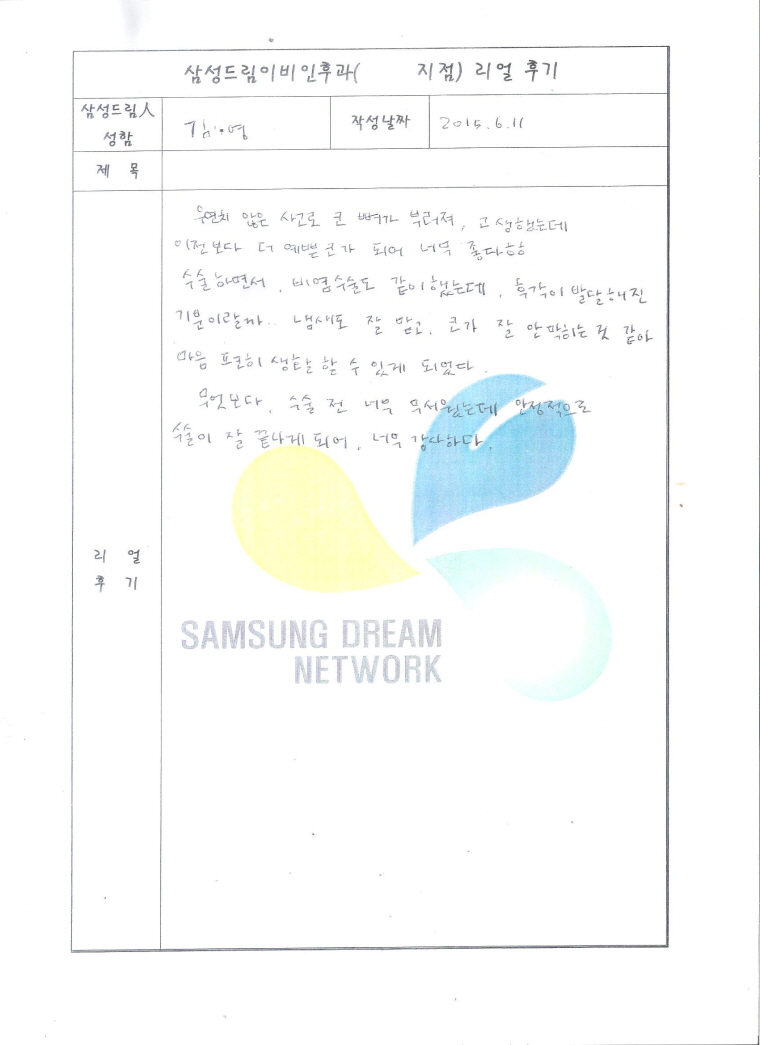 삼성드림이비인후과(          지점) 리얼 후기
삼성드림人
성함
김··영
작성날짜
2015.6.11
제 목
우연치 않은 사고로 코 뼈가 부러져, 고생했는데
이전보다 더 예쁜 코가 되어 너무 좋다하하
수술하면서, 비염수술도 같이했는데, 후각이 발달해진
기분이랄까.. 냄새도 잘 맡고, 코가 잘 안막히는 것 같아
마음 편히 생활할 수 있게 되었다.
무엇보다, 수술 전 너무 무서웠는데 안정적으로
수술이 잘 끝나게 되어, 너무 감사하다.
리 얼
후 기
SAMSUNG DREAM
NETWORK